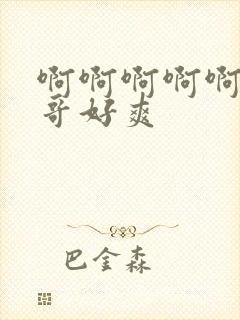 啊啊啊啊啊
哥好爽
巴金森